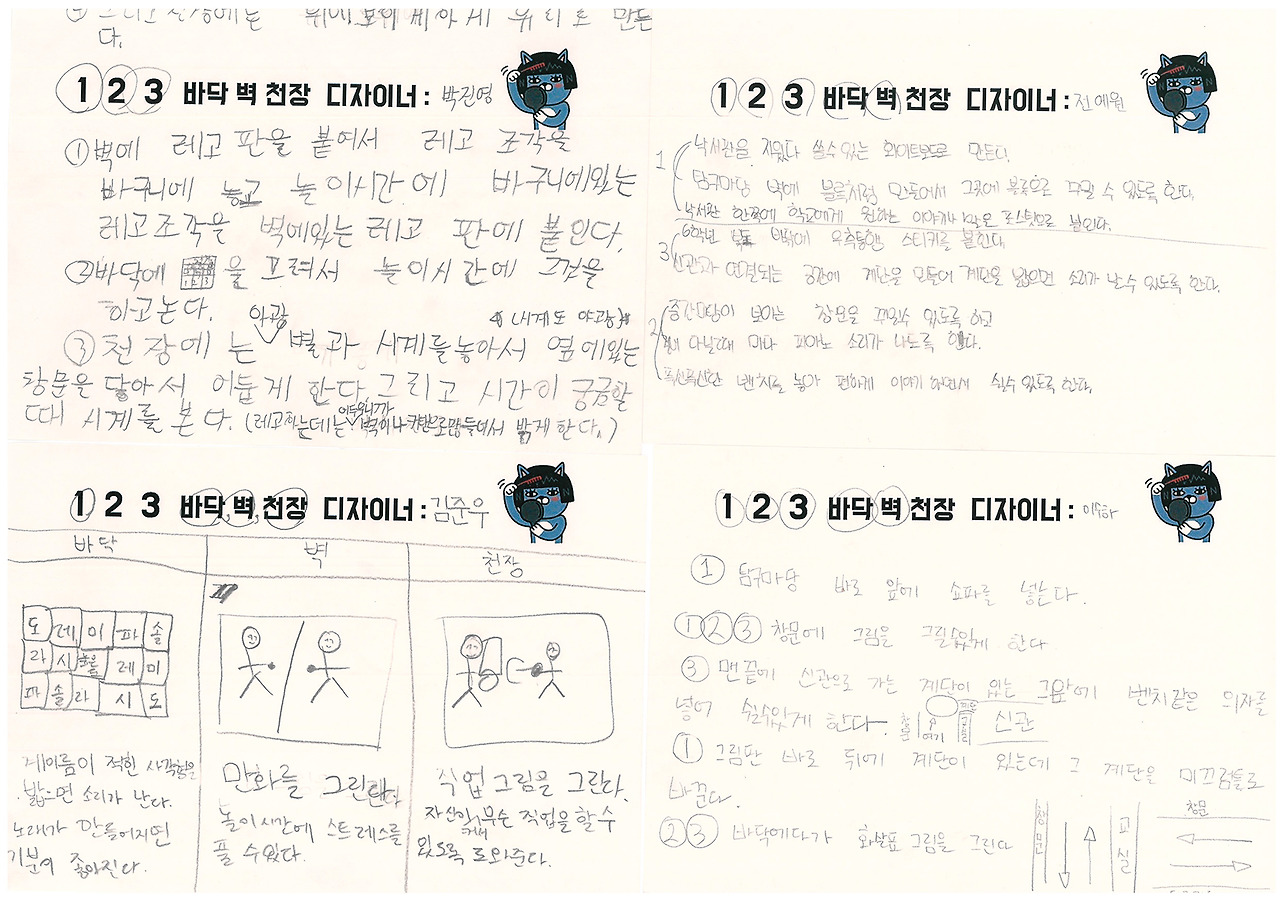 그리고 천장에는 위에 보이게 하얀게 유리로 만든
다.
1 2 3 바닥 벽 천장 디자이너 : 박진영
① 벽에 레고 판을 붙여서 레고 조각을
바구니에 놓고 놀이시간에 바구니에있는
레고조각을 벽에있는 레고 판에 붙인다.
② 바닥에 을 그려서 놀이시간에 그것을
하고 논다.
야광 (시계도 야광)
③ 천장에는 별과 시계를놓아서 옆에있는
창문을 닫아서 어둡게 한다. 그리고 시간이 궁금할
때 시계를 본다. (레고하는데는 어두우니까 벽이나 커튼으로 만들어서 밝게 한다.)
1 2 3 바닥 벽 천장 디자이너 : 전예원
1 낙서판을 지웠다 쓸수있는 화이트보드로 만든다.
탐구마당 벽에 블록처럼 만들어서 그곳에 블록으로 꾸밀 수 있도록 한다.
낙서판 한쪽에 학교에게 원하는 이야기나 말은 포스트잇으로 붙인다.
6학년 바닥에 우측통행 스티커를 붙인다.
3 신관과 연결되는 공간에 계단을 만들어 계단을 밟으면 소리가 날수 있도록 한다.
2 중간마당이 보이는 창문을 꾸밀수 있도록 하고
아닐때 마다 피아노 소리가 나도록 한다.
푹신푹신한 벤치를 놓아 편하게 이야기 하면서 쉴수 있도록 한다.
1 2 3 바닥 벽 천장 디자이너 : 김준우
바닥 벽 천장
도 레 미 파 솔
라 시 레 미
파 솔 라 시 도
게이름이 적힌 사각형을
밟으면 소리가 난다.
노래가 만들어지면
기분이 좋아진다.
만화를 그린다.
놀이시간에 스트레스를
풀 수있다.
직업 그림을 그린다.
자신이 커서 무슨 직업을 할수
있도록 도와준다.
1 2 3 바닥 벽 천장 디자이너 :
① 탐구마당 바로 앞에 쇼파를 넣는다.
①②③ 창문에 그림을 그릴수있게 한다
③ 맨 끝에 신관으로 가는 계단이 있는 그앞에 벤치같은 의자를
넣어 쉴수있게 한다. 창문 여기 신관
① 그림판 바로 뒤에 계단이 있는데 그 계단을 미끄럼틀로
바꾼다.
②③ 바닥에다가 화살표 그림을 그린다
창문 교실 창문